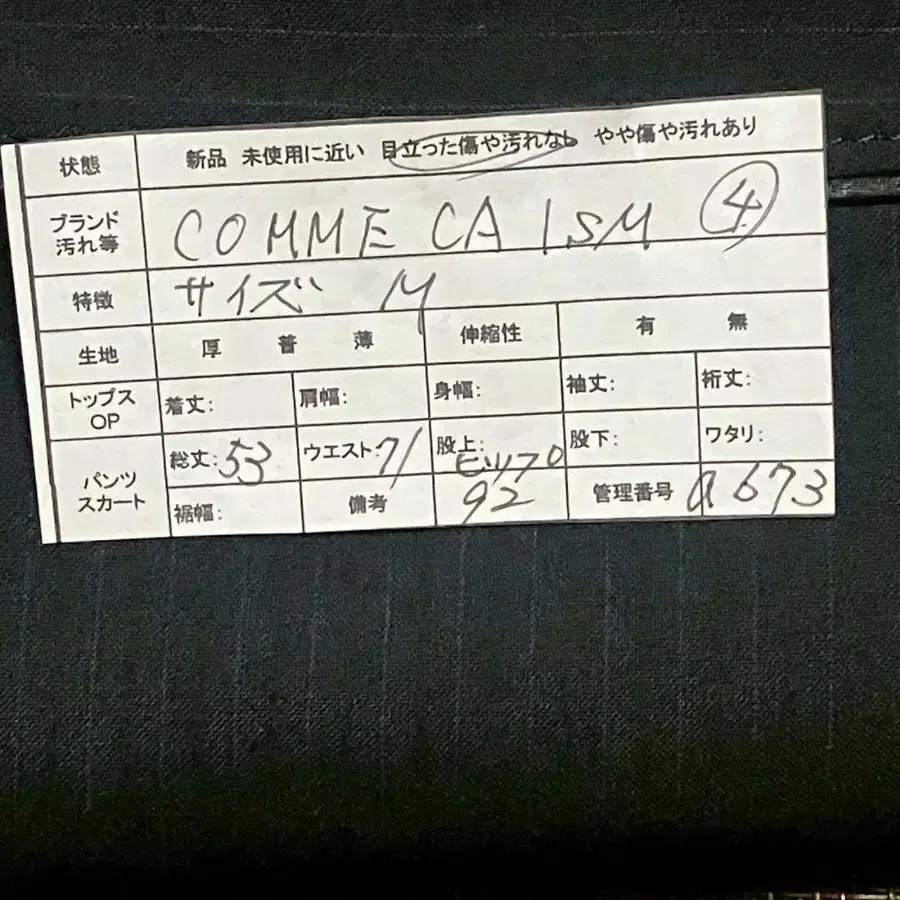 状態 新品 未使用に近い 目立った傷や汚れなし やや傷や汚れあり
ブランド 汚れ等 COMME CA ISM ④
特徴 サイズ M
生地 厚 普 薄 伸縮性 有 無
トップス OP 着丈: 肩幅: 身幅: 袖丈: 裄丈:
パンツ スカート 総丈: 53 ウエスト: 71 股上: 股下: ワタリ:
ヒップ
裾幅: 備考 92 管理番号 a673